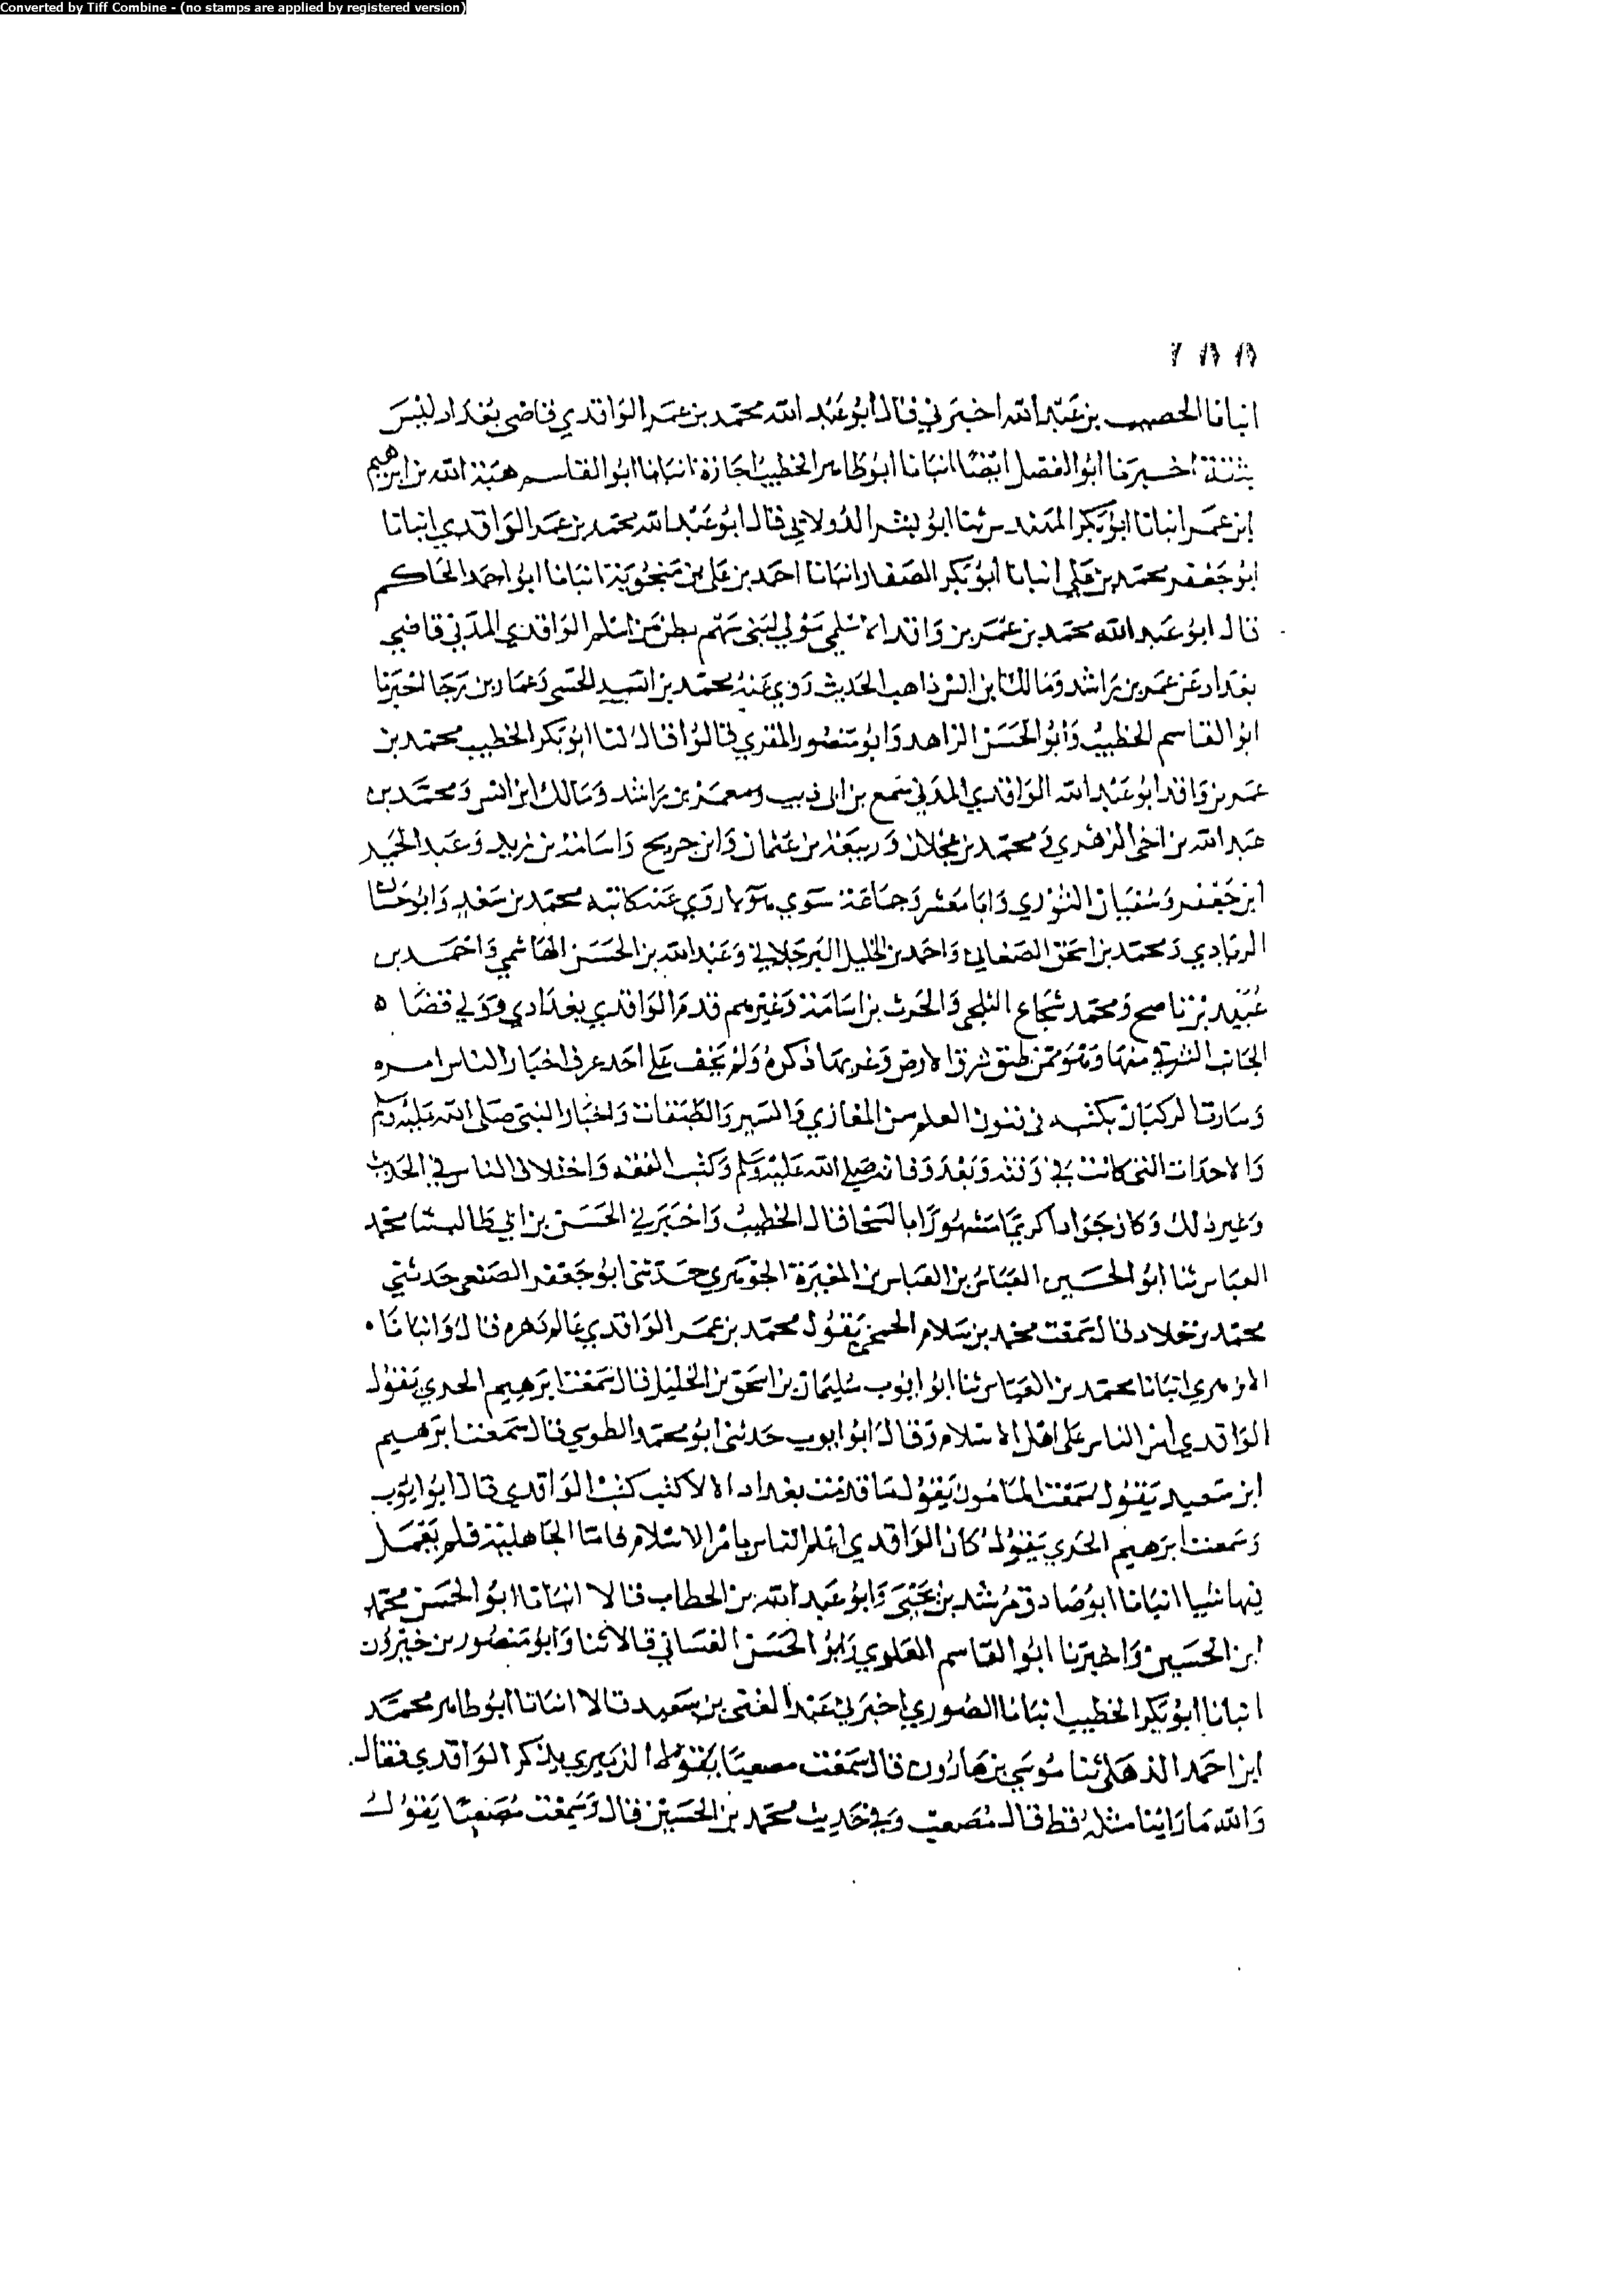 Converted by Tiff Combine - (no stamps are applied by registered version)
انبانا الخصيب بن عبد الله اخبرني قال ابو عبد الله محمد بن عمر الواقدي قاضي بغداد ليس
بثقة اخبرنا ابو الفضل ايضا انبانا ابو طاهر الخطيب اجازة انبانا ابو القاسم هبة الله بن ابرهيم
ابن عمر انبانا ابو بكر المهندس ثنا ابو بشر الدولابي قال ابو عبد الله محمد بن عمر الواقدي انبانا
ابو جعفر محمد بن علي انبانا ابو بكر الصفار انبانا احمد بن علي بن منجوية انبانا ابو احمد الحاكم
قال ابو عبد الله محمد بن عمر بن واقد الاسلمي مولي لبني سهم بطن من اسلم الواقدي المدني قاضي
بغداد عن عمر بن راشد ومالك بن انس ذاهب الحديث روي عنه محمد بن وعمار بن رجا اخبرنا
ابو القاسم الخطيب وابو الحسن الزاهد وابو منصور المقري قالوا قال لنا ابو بكر الخطيب محمد بن
عمر بن واقد ابو عبد الله الواقدي المدني سمع بن ابي ذيب ومعمر بن راشد ومالك ابن انس ومحمد بن
عبد الله بن اخي الزهري ومحمد بن عجلان وربيعة بن عثمان وابن جريج واسامة بن زيد وعبد الحميد
ابن جعفر وسفيان الثوري وابا معشر وجماعة سوي هولا روي عنه كاتبه محمد بن سعد وابو حسان
الزيادي ومحمد بن اسحق الصغاني واحمد بن الخليل البرجلاني وعبد الله بن الحسن الهاشمي واحمد بن
عبيد بن ناصح ومحمد شجاع الثلجي والحرث بن اسامة وغيرهم قدم الواقدي بغدادي وولي قضا ه
الجانب الشرقي منها وهو ممن طبق شرق الارض وغربها ذكره ولم يخف علي احد عرف اخبار الناس امره
وسارت الركبان بكتبه في فنون العلم من المغازي والسير والطبقات واخبار النبي صلى الله عليه وسلم
والاحداث التي كانت في وقته وبعد وفاته صلي الله عليه وسلم وكتب الفقه واختلاف الناس في الحديث
وغير ذلك وكان جوادا كريما مشهورا بالسخا قال الخطيب واخبرني الحسن بن ابي طالب محمد
العباس ثنا ابو الحسين العباس بن العباس بن المغيرة الجوهري حدثني ابو جعفر حدثني
محمد بن خلاد قال سمعت محمد بن سلام الجمحي يقول محمد بن عمر الواقدي عالم دهره قال وانبانا
الازهري انبانا محمد بن العباس ثنا ابو ايوب سليمان بن اسحق بن الخليل قال سمعت ابرهيم الحربي يقول
الواقدي امن الناس على اهل الاسلام وقال ابو ايوب حدثني ابو محمد الطوسي قال سمعت ابرهيم
ابن سعيد يقول سمعت المامون يقول ما قدمت بغداد الا لاكتب كتب الواقدي قال ابو ايوب
وسمعت ابرهيم الحربي يقول كان الواقدي اعلم الناس بامر الاسلام فاما الجاهلية فلم يعمل
فيها شيا انبانا ابو صادق مرشد بن يحيى وابو عبد الله بن الحطاب قالا انبانا ابو الحسن محمد
ابن الحسين واخبرنا ابو القاسم العلوي وابو الحسن الغساني قالا ثنا وابو منصور بن خيرون
انبانا ابو بكر الخطيب انبانا الصوري اخبرني عبد الغني بن سعيد قالا انبانا ابو طاهر محمد
ابن احمد الذهلي ثنا موسي بن هارون قال سمعت مصعبا الزبيري يذكر الواقدي فقال
والله ما راينا مثله قط قال مصعب وفي حديث محمد بن الحسين قال وسمعت مصعبا يقول